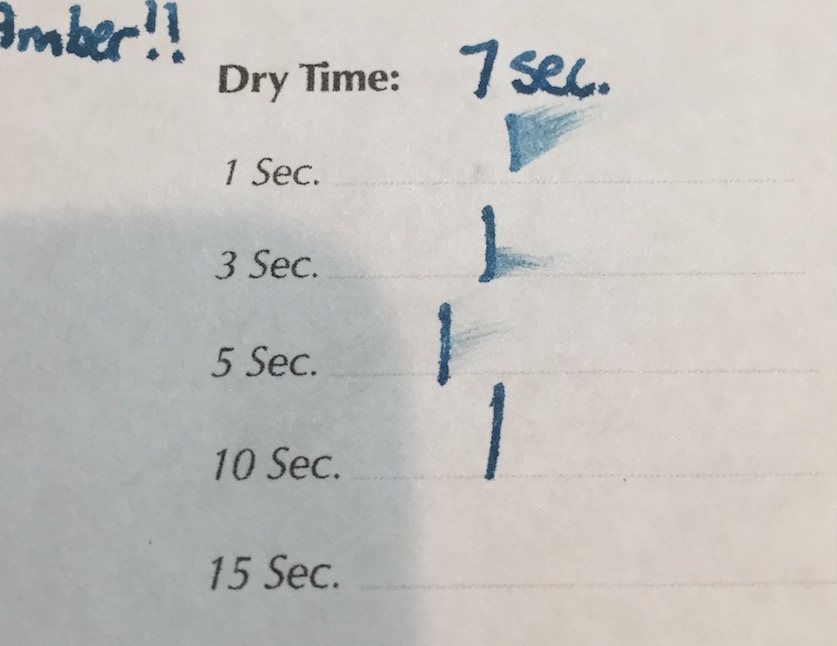 Amber!!
Dry Time: 7 sec.
1 Sec.
3 Sec.
5 Sec.
10 Sec.
15 Sec.